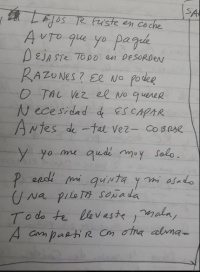 Lejos te fuiste en coche
AUTO que yo pagué
DEJASTE TODO en DESORDEN
RAZONES? El NO poder
O TAL VEZ el NO querer
Necesidad de ESCAPAR
Antes de -tal vez- COBRAR
Y yo me quedé muy solo.
Perdí mi quinta y mi asado
UNA pileta soñada
Todo te llevaste, mala,
A compartir con otra alma-